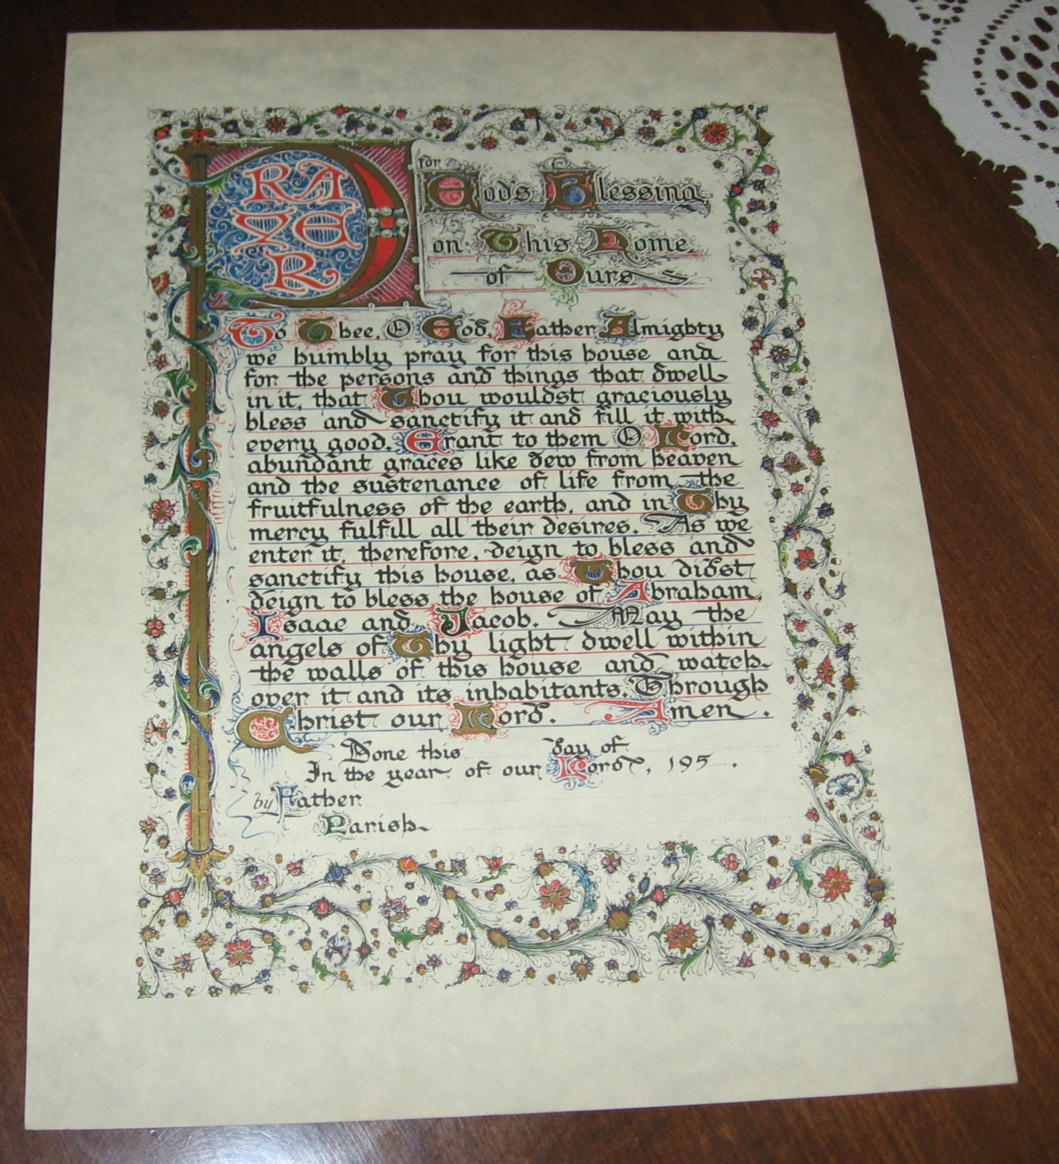 PRAYER
for
God's Blessing
on This Home
of Ours
To Thee, O God, Father Almighty
we humbly pray for this house and
for the persons and things that dwell
in it, that Thou wouldst graciously
bless and sanctify it and fill it with
every good. Grant to them O Lord,
abundant graces like dew from heaven
and the sustenance of life from the
fruitfulness of the earth, and in Thy
mercy fulfill all their desires. As we
enter it, therefore, deign to bless and
sanctify this house, as Thou didst
deign to bless the house of Abraham,
Isaac and Jacob. May the
angels of Thy light dwell within
the walls of this house and watch
over it and its inhabitants. Through
Christ our Lord. Amen.
Done this day of
In the year of our Lord, 195 .
by Father
Parish